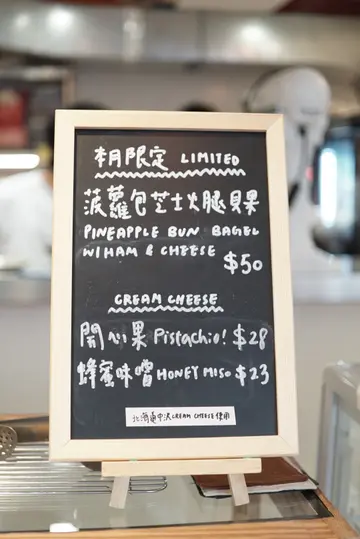 本月限定 LIMITED
菠蘿包芝士火腿貝果
PINEAPPLE BUN BAGEL
W/HAM & CHEESE
$50
CREAM CHEESE
開心果 Pistachio! $28
蜂蜜味噌 HONEY MISO $23
北海道中沢CREAM CHEESE使用